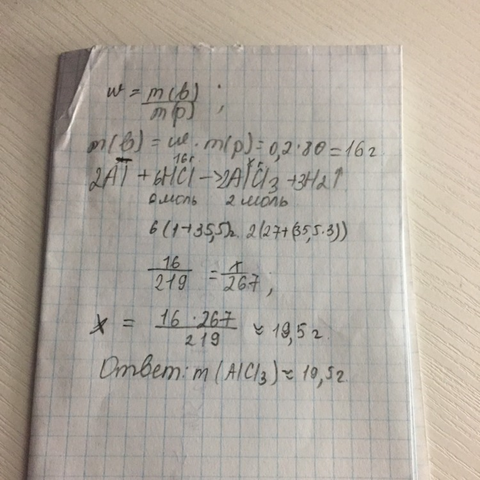 w = m(в)/m(р) ;
m(в) = w · m(р) = 0,2 · 80 = 16 г
16 г x г
2Al + 6HCl → 2AlCl3 + 3H2↑
6 моль 2 моль
6(1+35,5)г. 2(27+(35,5·3))
16/219 = x/267 ;
x = 16 · 267/219 ≈ 19,5 г.
Ответ: m(AlCl3) ≈ 19,5 г